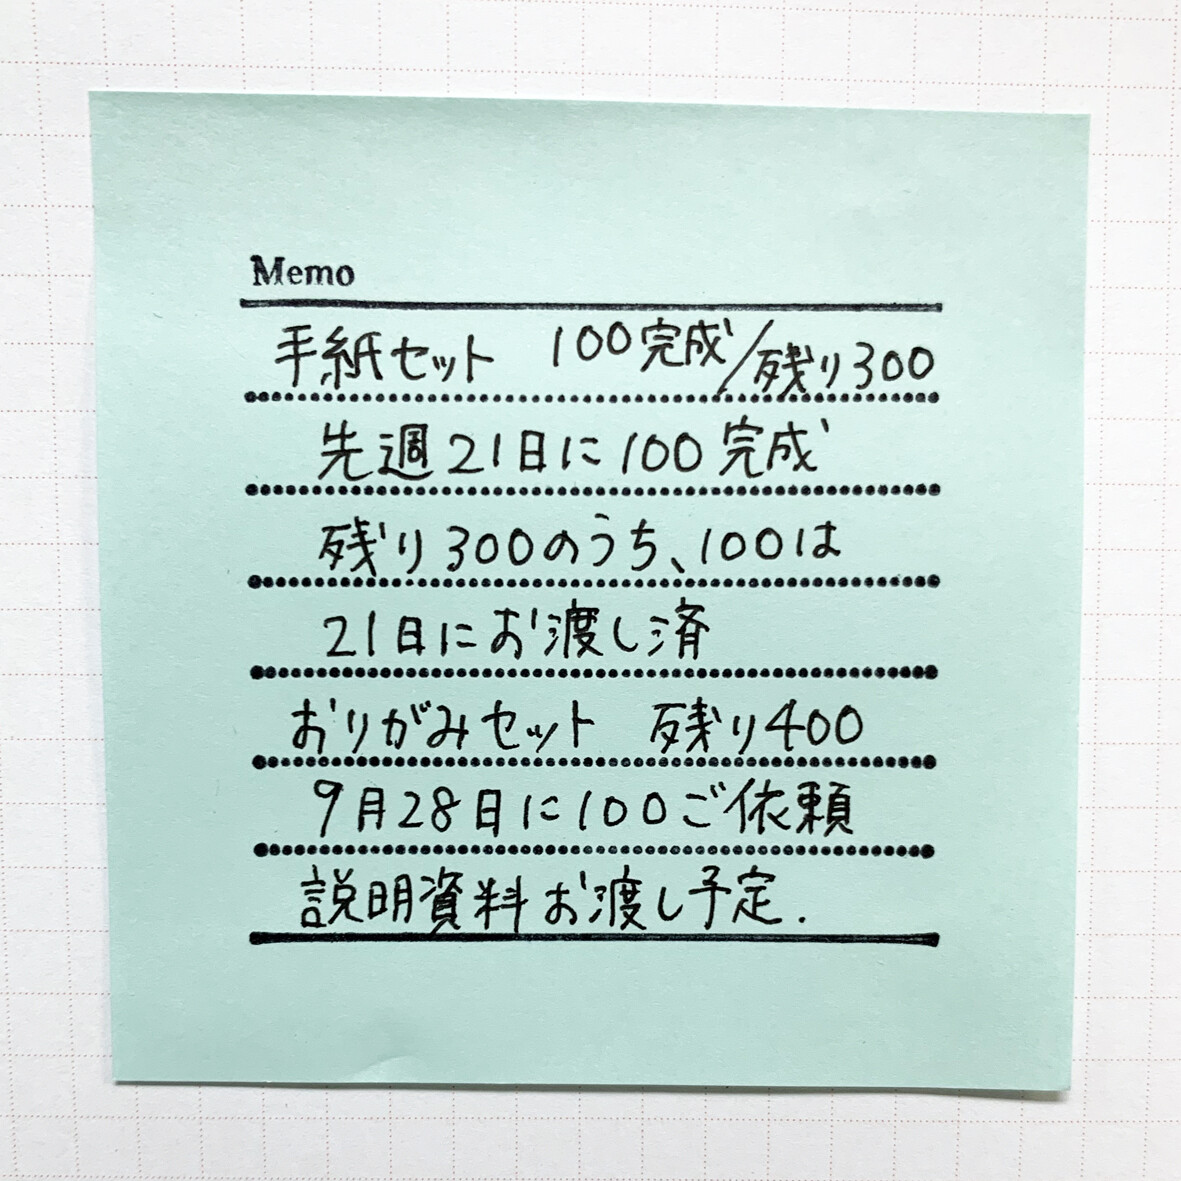 Memo
手紙セット 100完成/残り300
先週21日に100完成
残り300のうち、100は
21日にお渡し済
おりがみセット 残り400
9月28日に100ご依頼
説明資料お渡し予定.